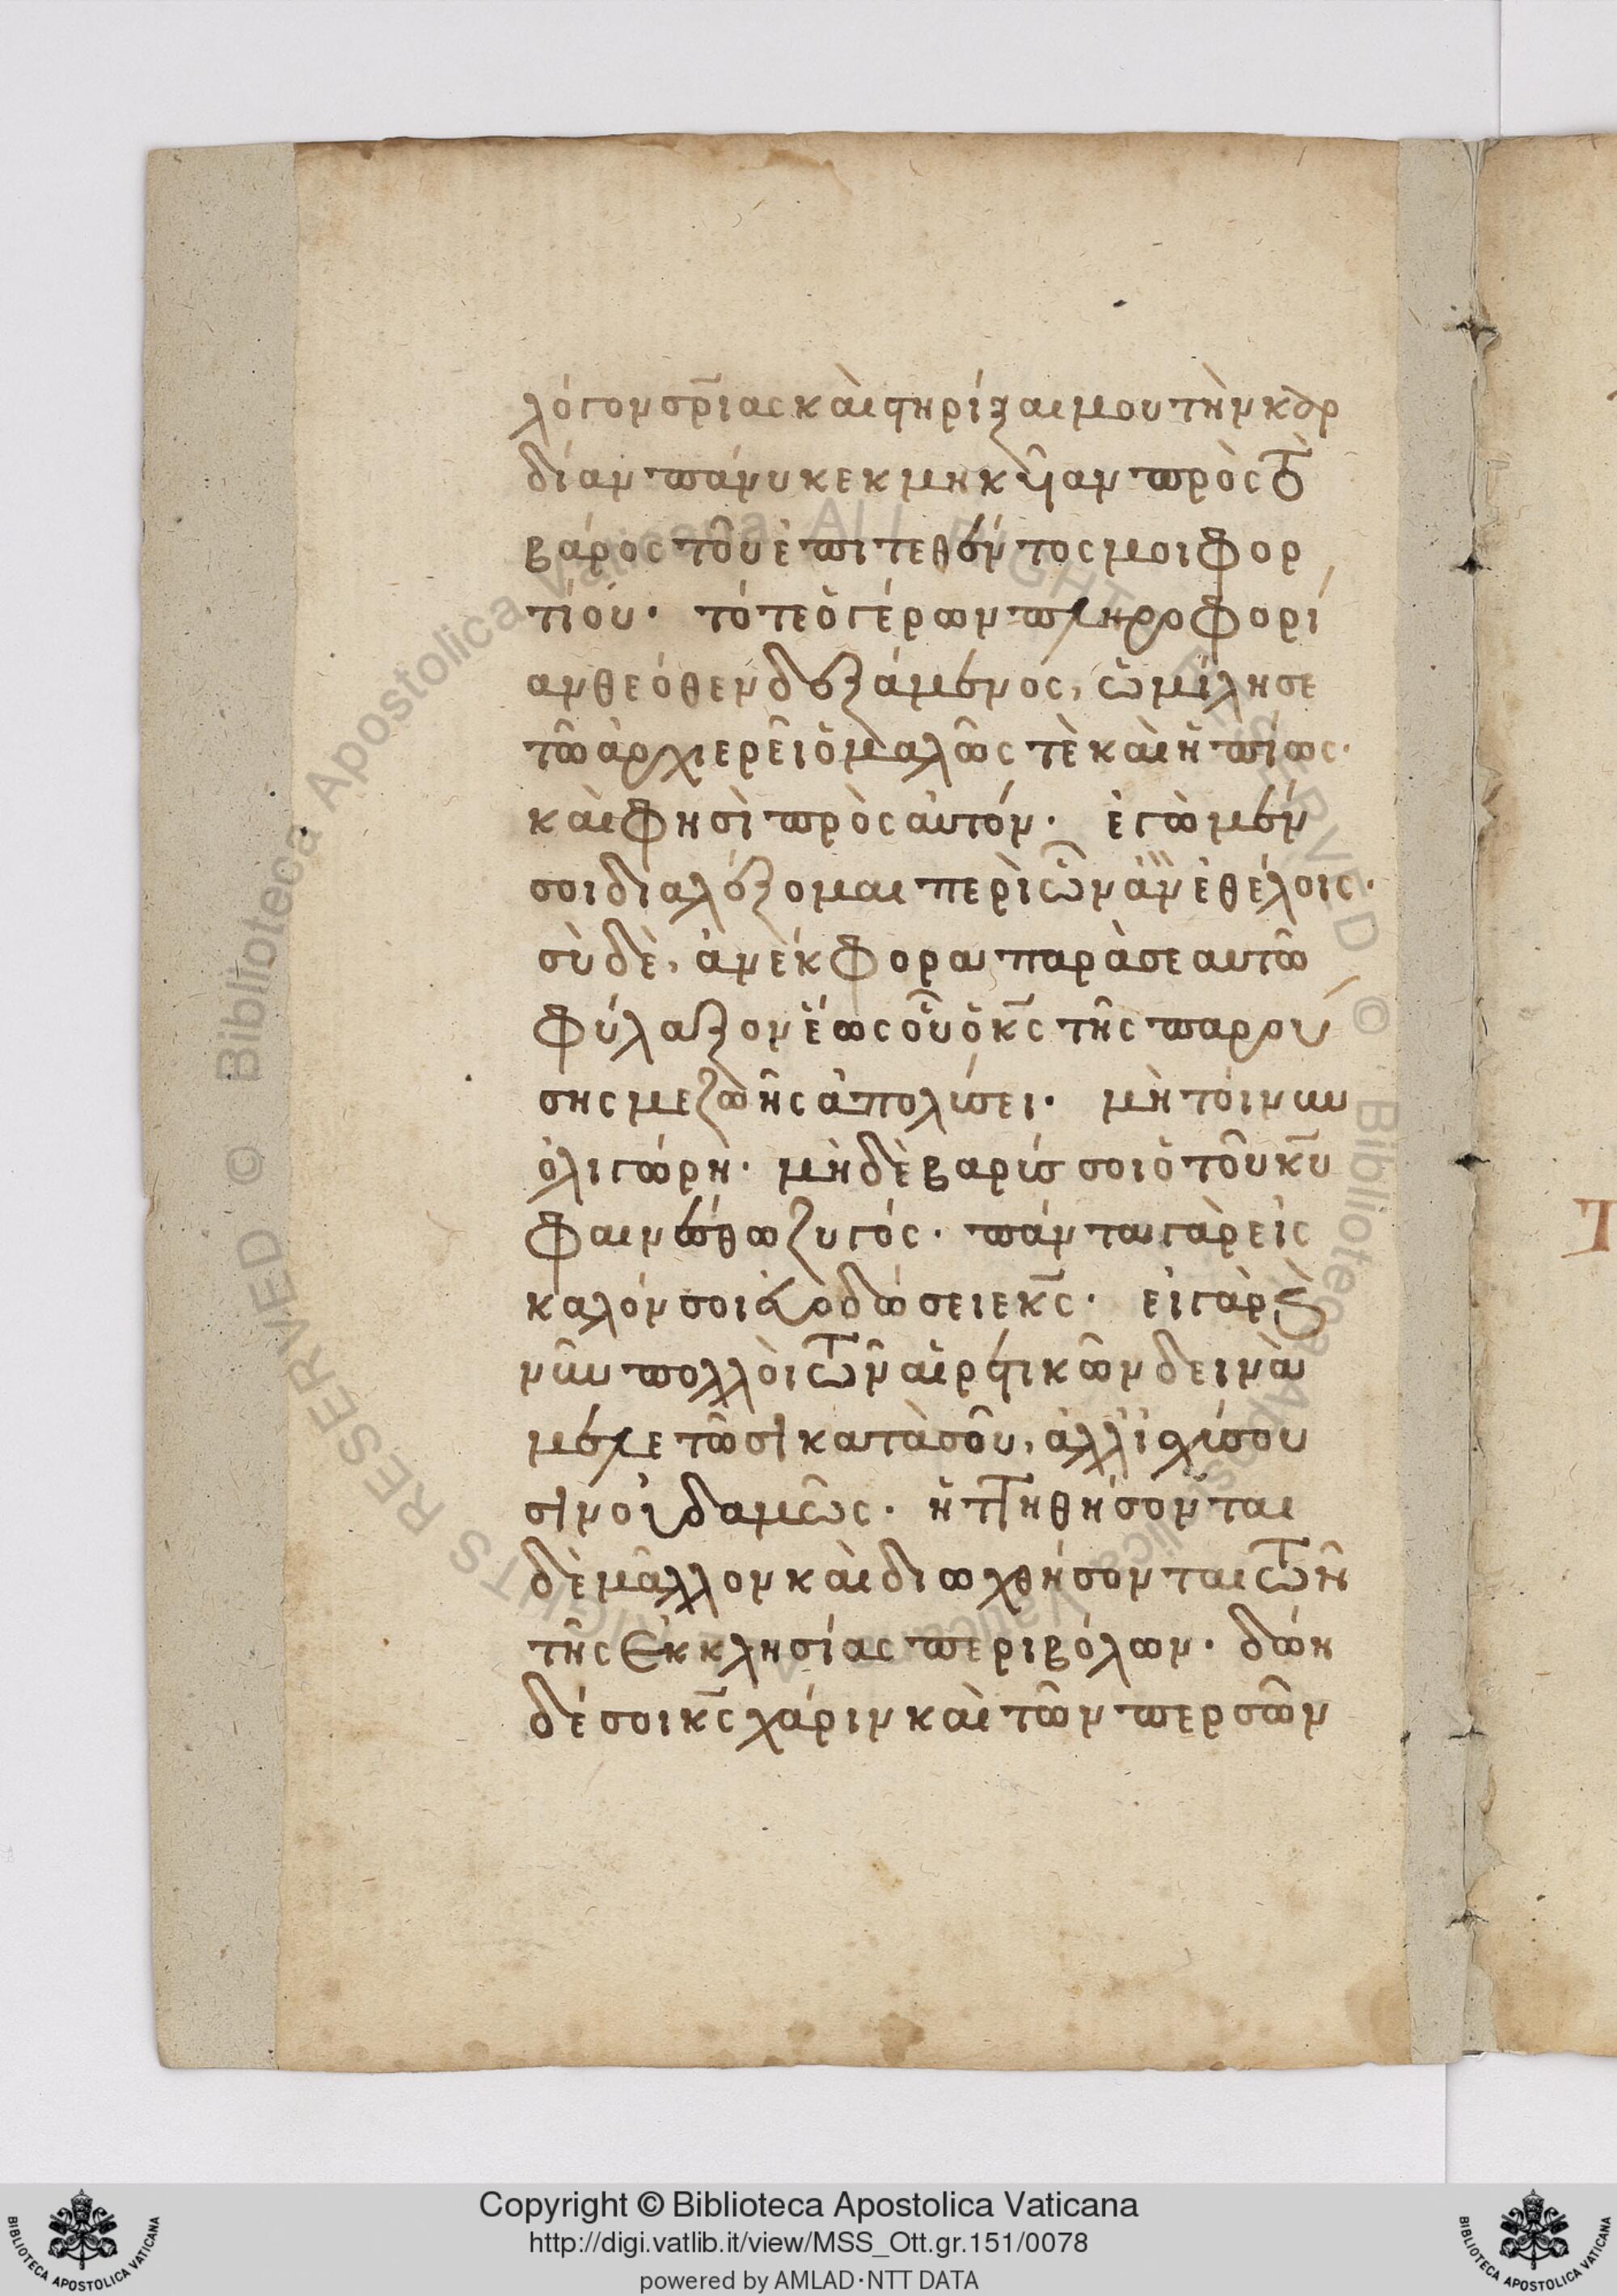 λόγον σρ̅ιας καὶ στηρίξαι μου τὴν καρ
δίαν πάνυ κεκμηκυῖαν πρὸς τὸ
βάρος τοῦ ἐπιτεθέντος μοι φορ
τίου· τότε ὁ γέρων πληροφορί
αν θεόθεν δεξάμενος, ὡμίλησε
τῶ ἀρχιερεῖ ὁμαλῶς τὲ καὶ ἠπίως·
καὶ φησὶ πρὸς αὐτόν· ἐγὼ μέν
σοι διαλέξομαι περὶ ὧν ἂν ἐθέλοις·
σὺ δὲ, ἀνέκφορα παρὰ σεαυτῶ
φύλαξον ἕως οὗ ὁ κ̅ς τῆς παρού
σης με ζωῆς ἀπολύσει· μὴ τοίνυν
ὀλιγώρη· μὴ δὲ βαρύς σοι ὁ τοῦ κ̅υ
φαινέσθω ζυγός· πάντα γὰρ εἰς
καλόν σοι εὐοδώσειε κ̅ς· εἰ γὰρ καὶ
νῦν πολλοὶ τῶν αἱρετικῶν δεινὰ
μελετῶσι κατὰ σοῦ, ἀλλ' ἰσχύσου
σιν οὐδαμῶς· ἡττηθήσονται
δὲ μᾶλλον καὶ διωχθήσονται τῶν
τῆς ἐκκλησίας περιβόλων· δώη
δέ σοι κ̅ς χάριν καὶ τῶν περσῶν
Copyright © Biblioteca Apostolica Vaticana
http://digi.vatlib.it/view/MSS_Ott.gr.151/0078
powered by AMLAD·NTT DATA